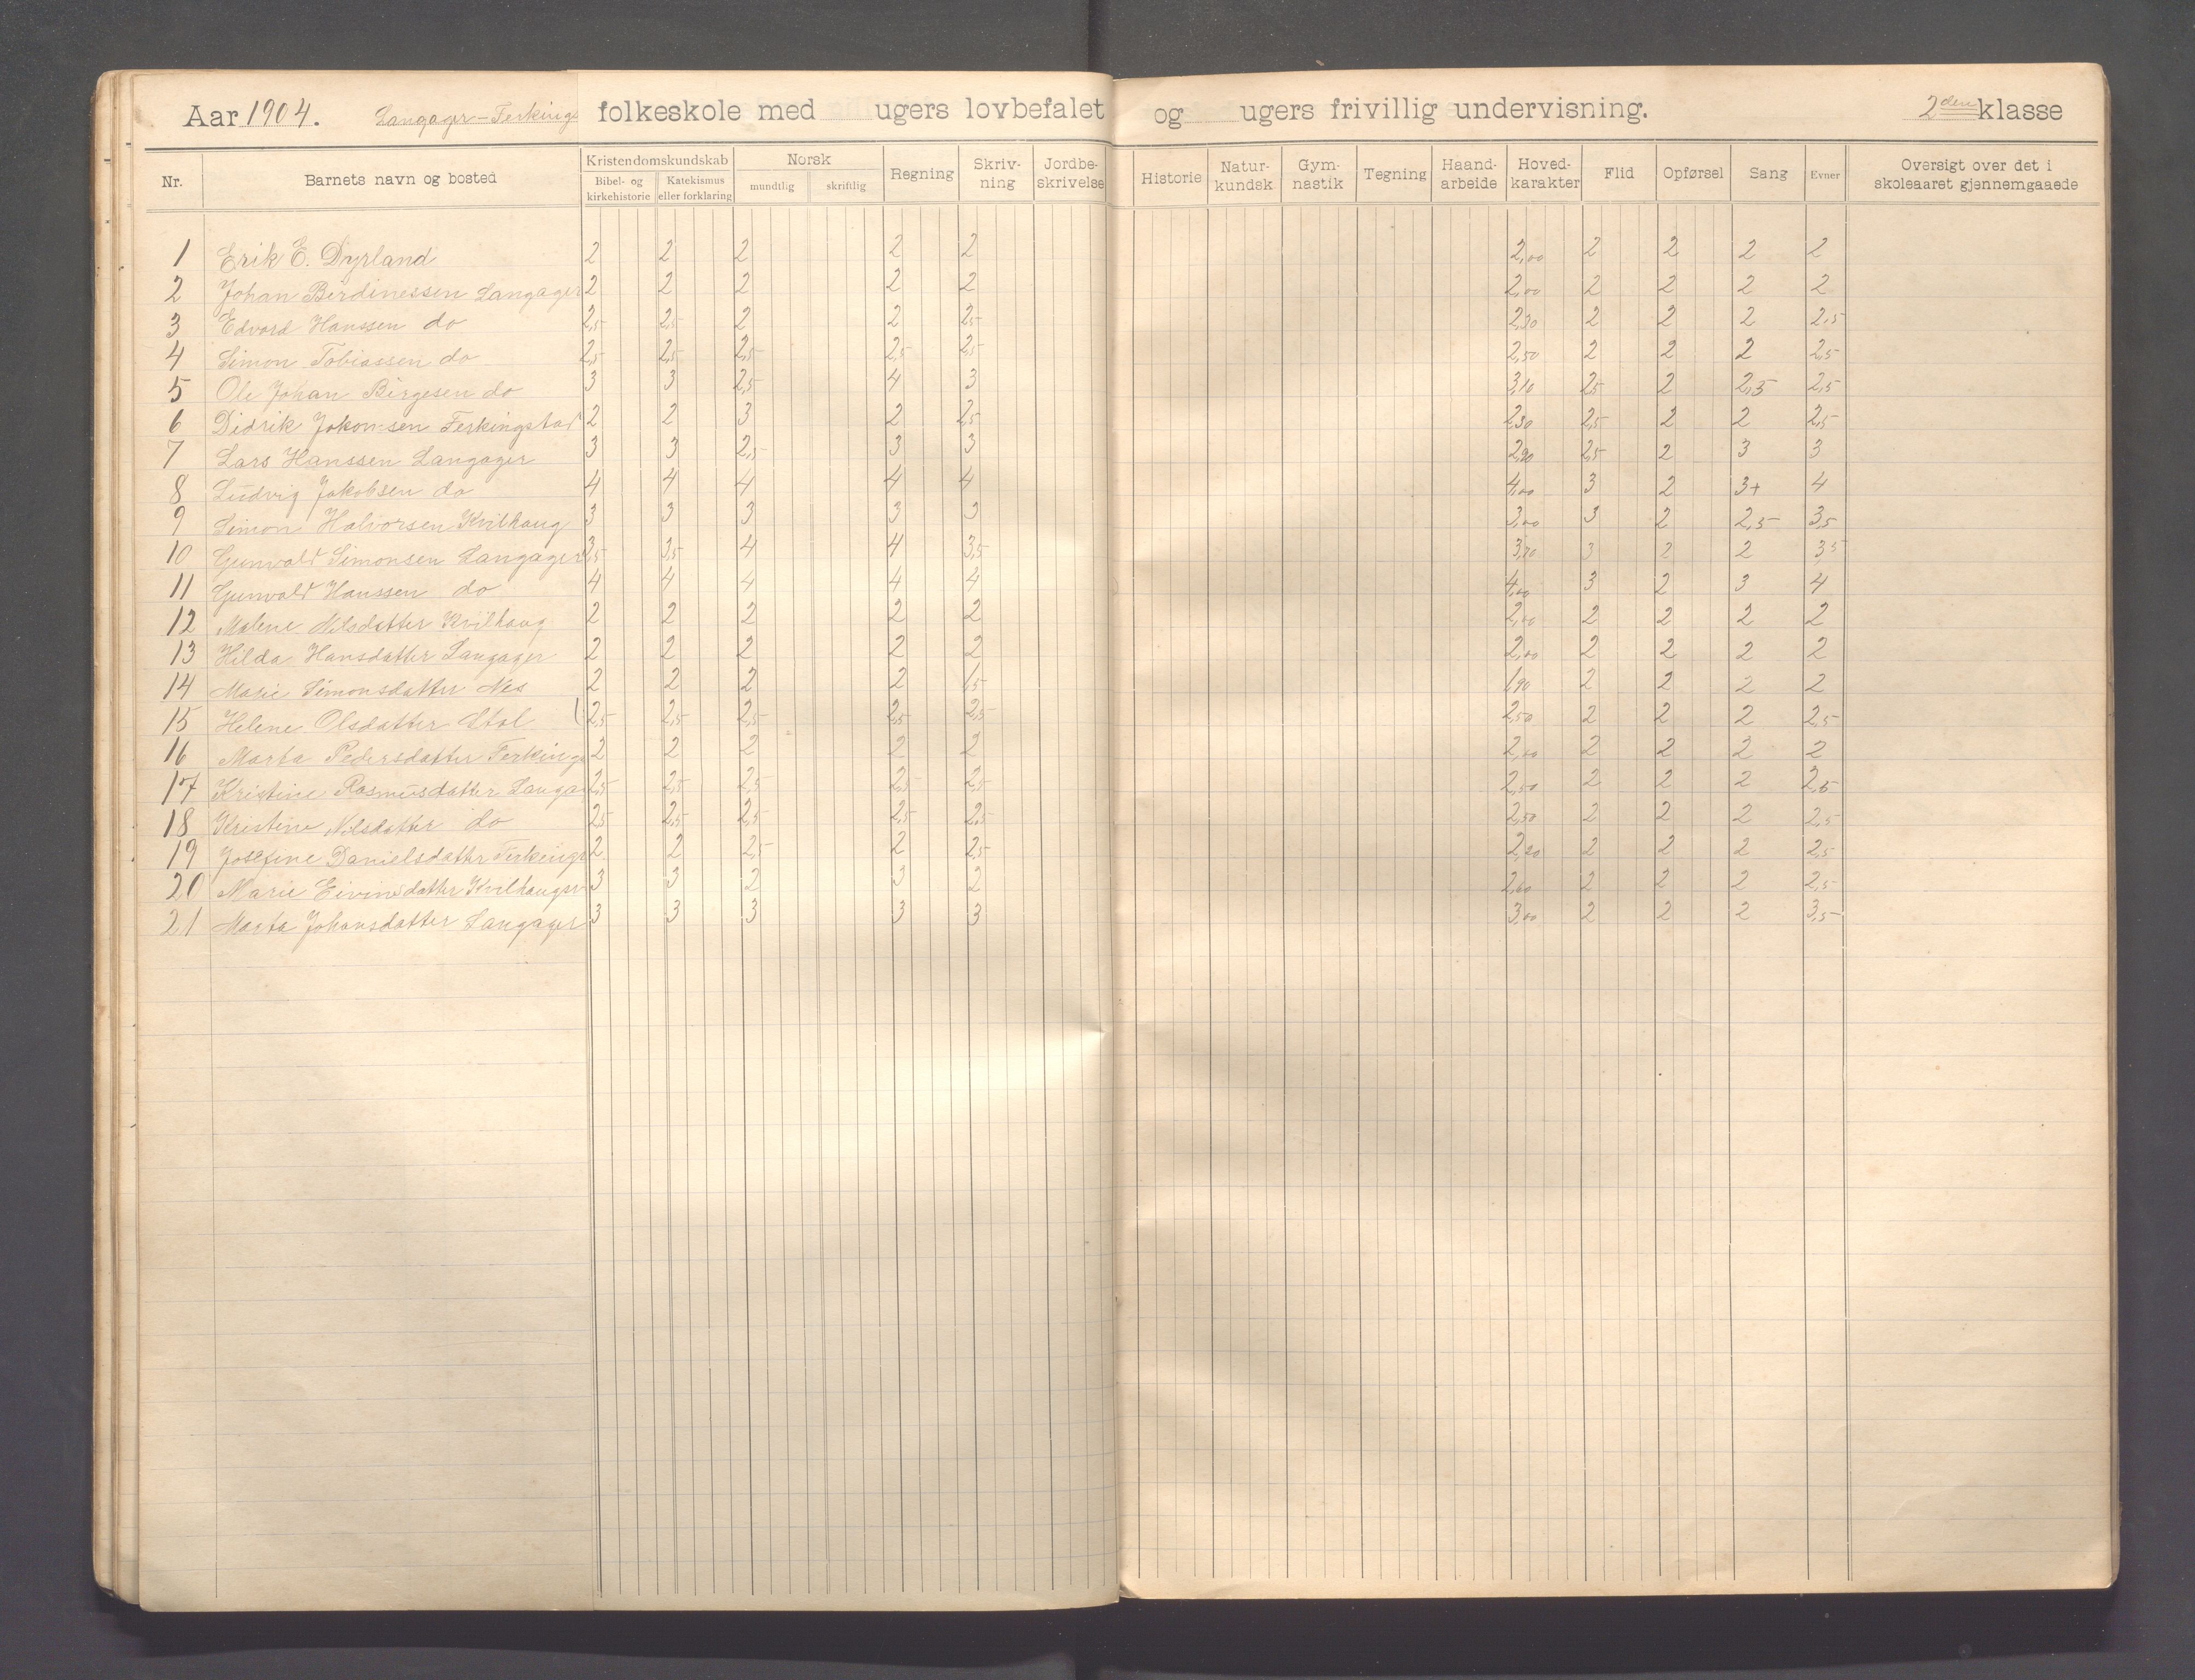 Aar 1904. Langager-Ferkings folkeskole med ugers lovbefalet og ugers frivillig undervisning. 2den klasse
Nr. Barnets navn og bosted Kristendomskundskab Norsk Regning Skriv-ning Jordbe-skrivelse Historie Natur-kundsk Gym-nastik Tegning Haand-arbeide Hoved-karakter Flid Opførsel Sang Evner Oversigt over det i skoleaaret gjennemgaaede
Bibel- og kirkehistorie Katekismus eller forklaring mundtlig skriftlig
1 Erik E. Dyrland 2 2 2 2 2 2,00 2 2 2 2
2 Johan Berdinessen Langager 2 2 2 2 2 2,00 2 2 2 2
3 Edvard Hanssen do 2,5 2,5 2 2 2,5 2,30 2 2 2 2,5
4 Simon Tobiassen do 2,5 2,5 2,5 2,5 2,5 2,50 2 2 2 2,5
5 Ole Johan Birgesen do 3 3 2,5 4 3 3,10 2,5 2 2,5 2,5
6 Didrik Ferkingstad 2 2 3 2 2,5 2,30 2,5 2 2 2,5
7 Lars Hanssen Langager 3 3 2,5 3 3 2,90 2,5 2 3 3
8 Ludvig Jakobsen do 4 4 4 4 4 4,00 3 2 3+ 4
9 Simon Halvorsen Kvilhaug 3 3 3 3 3 3,00 3 2 2,5 3,5
10 Gunvald Simonsen Langager 3,5 3,5 4 4 3,5 3,70 3 2 2 3,5
11 Gunvald Hanssen do 4 4 4 4 4 4,00 3 2 3 4
12 Malene Nilsdatter Kvilhaug 2 2 2 2 2 2,00 2 2 2 2
13 Hilda Hansdatter Langager 2 2 2 2 2 2,00 2 2 2 2
14 Marie Simonsdatter Nes 2 2 2 2 1,5 1,90 2 2 2 2
15 Helene Olsdatter Stol 2,5 2,5 2,5 2,5 2,5 2,50 2 2 2 2,5
16 Marta Pedersdatter Ferkings 2 2 2 2 2 2,00 2 2 2 2
17 Kristine Rasmusdatter Langa 2,5 2,5 2,5 2,5 2,5 2,50 2 2 2 2,5
18 Kristine Nilsdatter do 2,5 2,5 2,5 2,5 2,5 2,50 2 2 2 2,5
19 Josefine Danielsdatter Ferkings 2 2 2,5 2 2,5 2,20 2 2 2 2,5
20 Marie Eivinsdatter Kvilhaugsv 3 3 2 3 2 2,60 2 2 2 2,5
21 Marta Johansdatter Langager 3 3 3 3 3 3,00 2 2 2 3,5